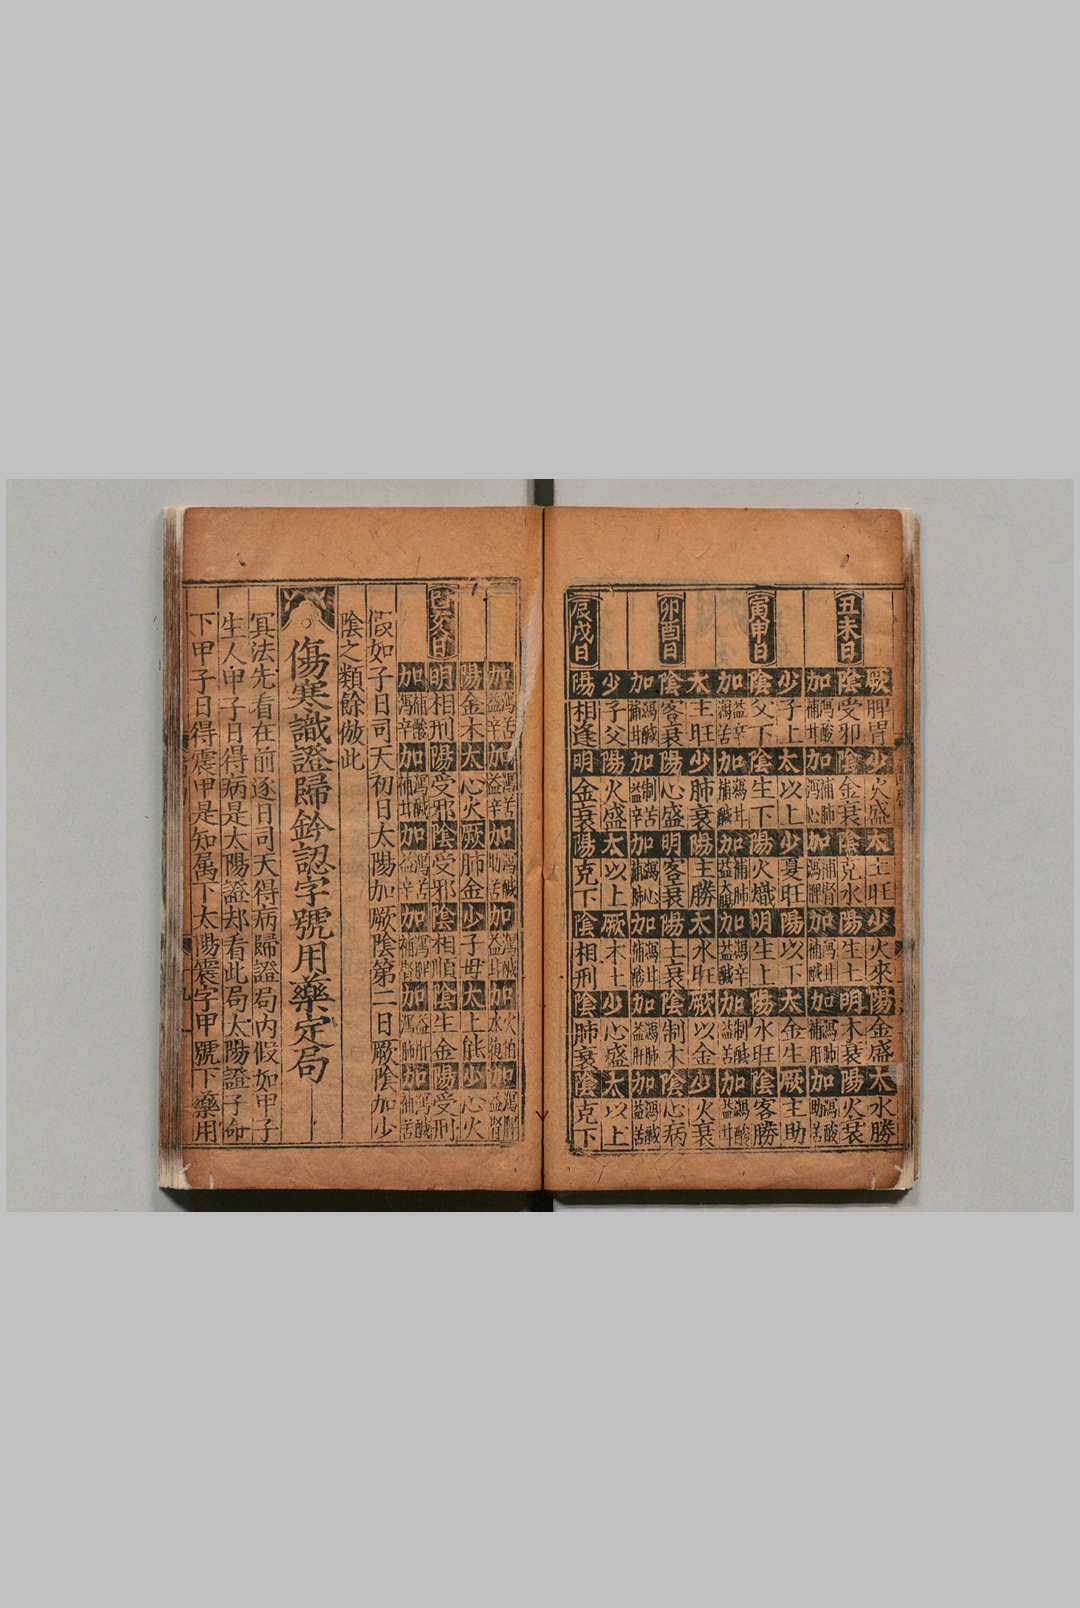 厥脾胃少火盛太土旺少火來陽金盛太水勝
丑未日陰受邪陰金衰陰克水陽生土明木衰陽火衰
加瀉酸補甘加補肺瀉心加補腎瀉脾加瀉甘補酸加瀉肺補肝加瀉酸助苦
少子上太以上少夏旺陽以下太金生厥主助
寅申日陰父下陰生下陽火熾明生上陽水旺陰客勝
加益辛瀉苦加瀉甘補鹹加補肺益大腸加瀉辛益鹹加制鹹益苦加瀉酸益甘
太主旺少肺衰陽主勝太水旺厥以金少火衰
卯酉日陰客衰陽心盛明客衰陽土衰陰制木陰心病
加瀉鹹補甘加制苦益辛加瀉心補肺加瀉甘補酸加瀉肺益肝加瀉鹹益苦
少子父陽火盛太以上厥木土少心盛太以上
辰戌日陽相逢明金衰陽克下陰相刑陰肺衰陰克下
加瀉苦益辛加瀉苦益辛加瀉鹹助苦加瀉鹹益甘加火水加瀉脾益腎
陽金木太心火厥肺金少子母太上能少心火
巳亥日明相刑陽受邪陰受邪陰相順陰生金陽受刑
加補酸瀉辛加瀉鹹補甘加瀉苦益辛加瀉脾補腎加益肝瀉肺加瀉鹹補苦
假如子日司天初日太陽加厥陰第二日厥陰加少
陰之類餘倣此
傷寒識證歸鈐認字號用藥定局
其法先看在前逐日司天得病歸證局內假如甲子
生人甲子日得病是太陽證却看此局太陽證子命
下甲子日得震甲是知属下太陽震字甲號下藥用